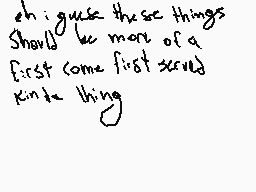 eh i guese these things
Should be more of a
first come first served
kinda thing